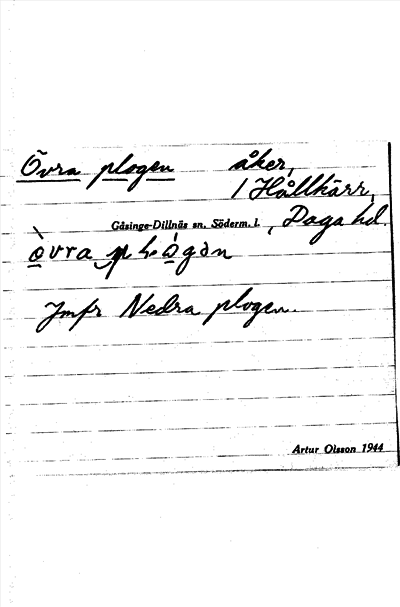 Övra plogen åker,
1 Hållkärr,
Gåsinge-Dillnäs sn. Söderm. l., Daga hd.
Jmfr Nedra plogen.
Artur Olsson 1944